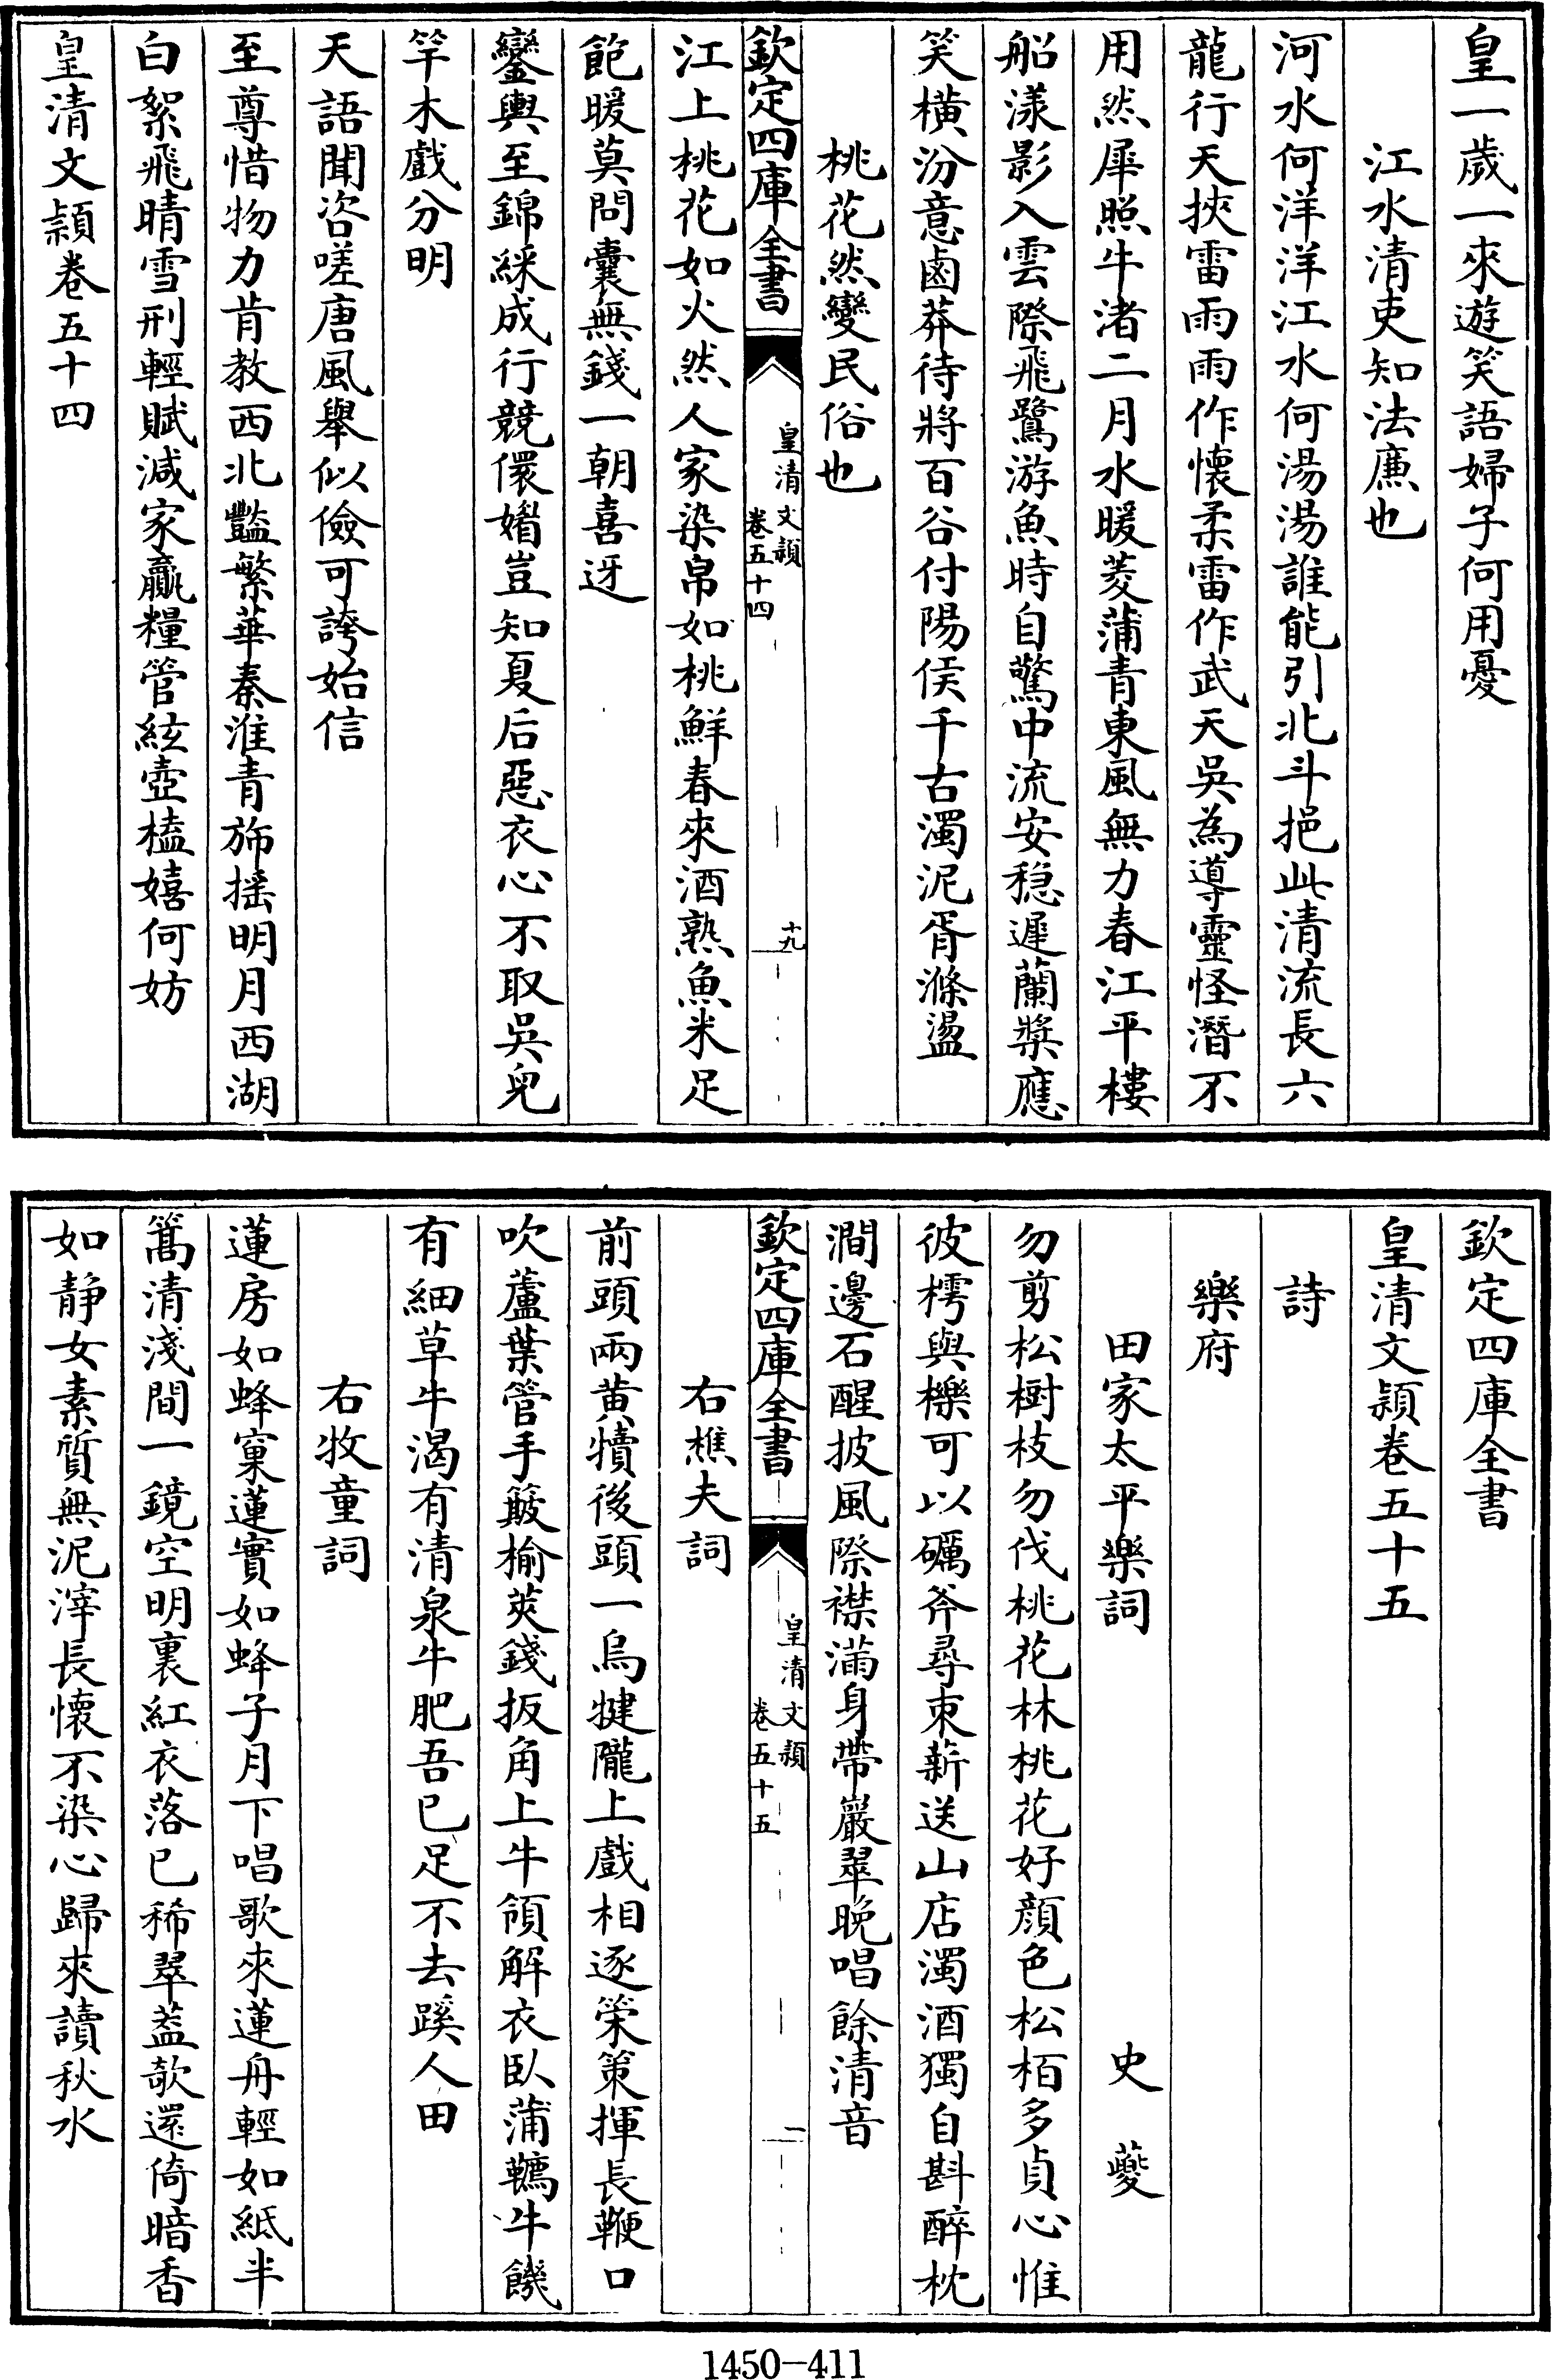 皇一歲一來遊笑語婦子何用憂
江水清吏知法廉也
河水何洋洋江水何湯湯誰能引北斗挹此清流長六
龍行天挾雷雨雨作懷柔雷作武天吳為導靈怪潛不
用然犀照牛渚二月水暖菱蒲青東風無力春江平樓
船漾影入雲際飛鷺游魚時自驚中流安穩遲蘭槳應
笑橫汾意鹵莽待將百谷付陽侯千古濁泥胥滌盪
桃花然變民俗也
欽定四庫全書
皇清文穎
卷五十四
十九
江上桃花如火然人家染帛如桃鮮春來酒熟魚米足
飽暖莫問囊無錢一朝喜迓
鑾輿至錦綵成行競儇媘豈知夏后惡衣心不取吳兒
竿木戲分明
天語聞咨嗟唐風舉似儉可誇始信
至尊惜物力肯教西北豔繁華秦淮青旆摇明月西湖
白絮飛晴雪刑輕賦減家贏糧管絃壺榼嬉何妨
皇清文穎卷五十四
欽定四庫全書
皇清文穎卷五十五
詩
樂府
田家太平樂詞 史夔
勿剪松樹枝勿伐桃花林桃花好顏色松栢多貞心惟
彼樗與櫟可以礪斧尋束薪送山店濁酒獨自斟醉枕
澗邊石醒披風際襟滿身帶巖翠晚唱餘清音
欽定四庫全書
皇清文穎
卷五十五
一
右樵夫詞
前頭兩黄犢後頭一烏犍隴上戲相逐筞策揮長鞭口
吹蘆葉管手簸榆莢錢扳角上牛領解衣臥蒲韉牛饑
有細草牛渴有清泉牛肥吾已足不去蹊人田
右牧童詞
蓮房如蜂窠蓮實如蜂子月下唱歌來蓮舟輕如紙半
篙清淺間一鏡空明裏紅衣落已稀翠葢欹還倚暗香
如静女素質無泥滓長懷不染心歸來讀秋水
1450-411